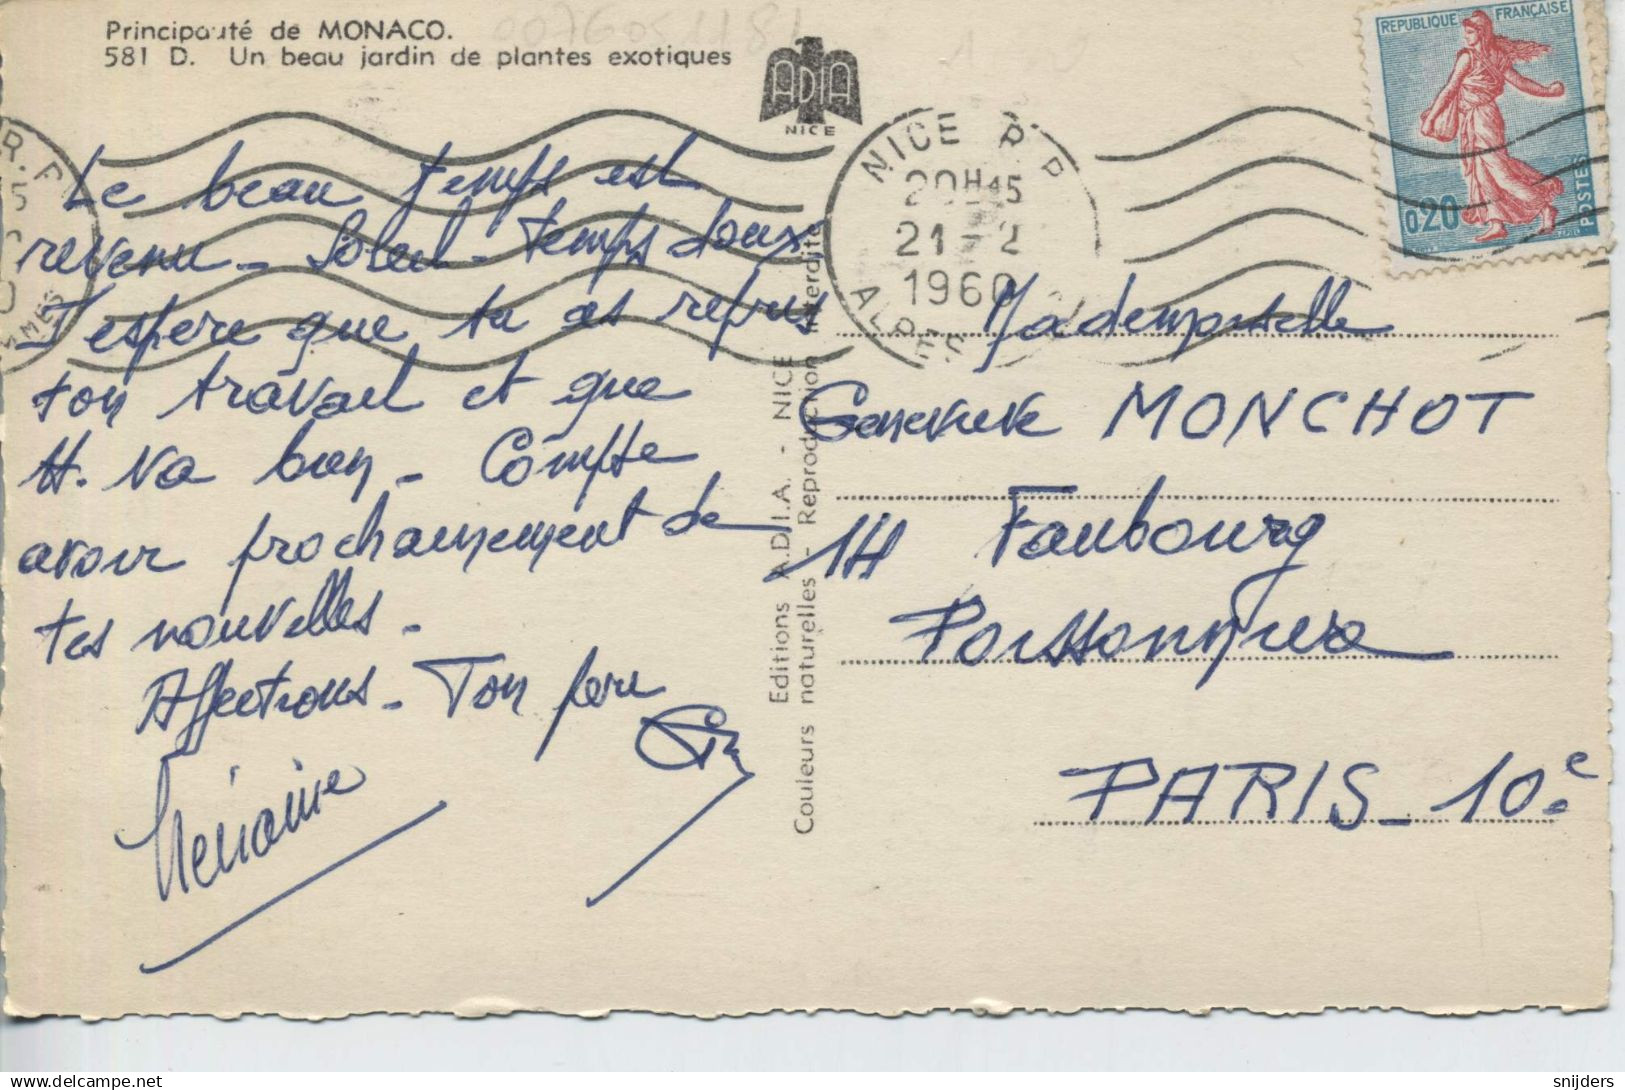 Principauté de MONACO.
581 D. Un beau jardin de plantes exotiques
ADIA
NICE
REPUBLIQUE FRANÇAISE
0,20
POSTES
NICE R.P.
20H45
21-2
1960
ALPES
Le beau temps est
revenu - Soleil - temps doux,
J'espère que tu as repris
ton travail et que
H. va bien - Compte
avoir prochainement de
tes nouvelles -
Affections - Ton père
Editions A.D.I.A. - NICE
Couleurs naturelles - Reproduction interdite
Mademoiselle
Geneviève MONCHOT
114 Faubourg
Poissonnière
PARIS - 10e
snijders